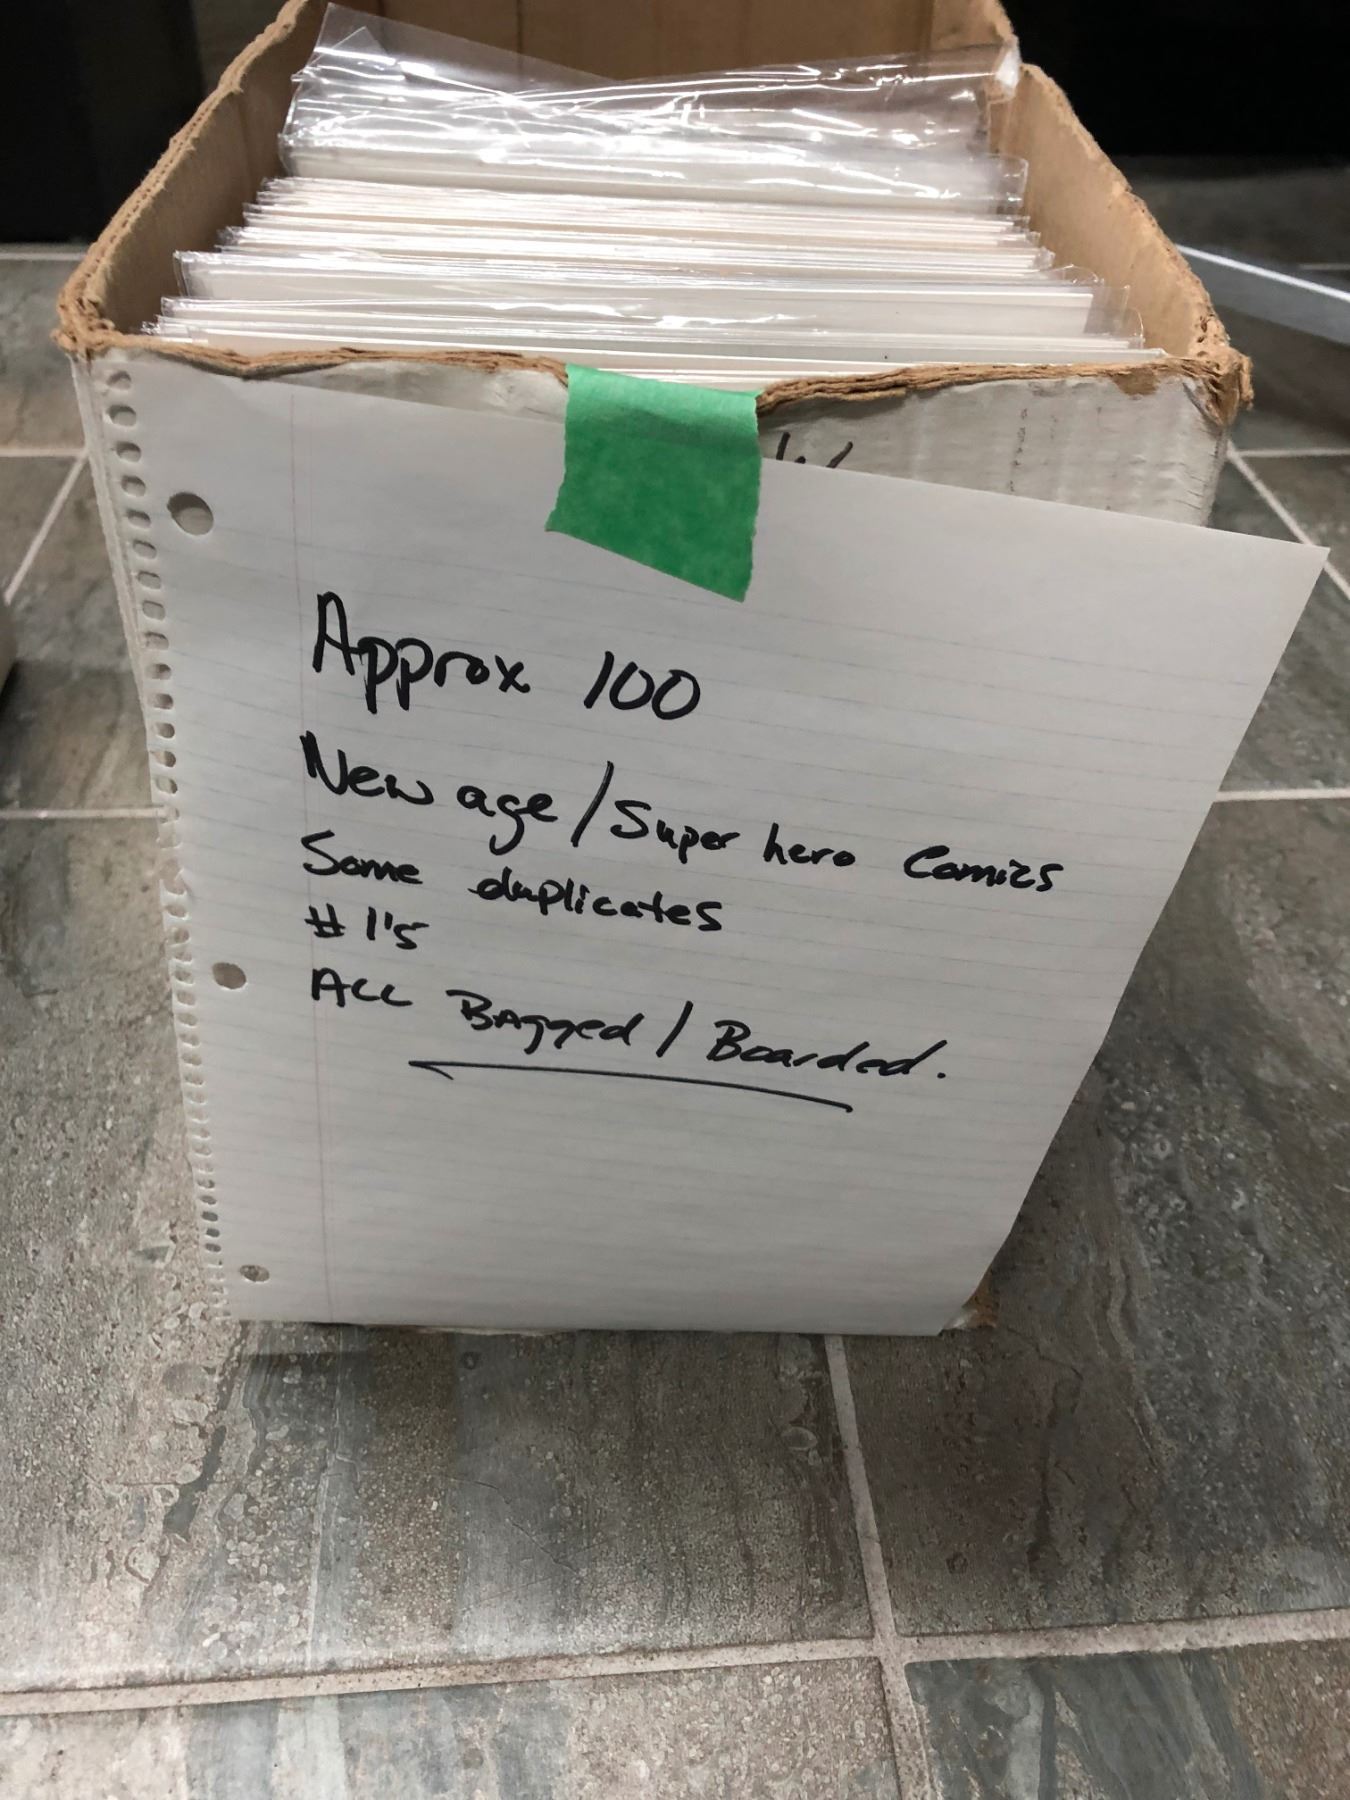 Approx 100
New age / Super hero Comics
Some duplicates
# 1's
ALL Bagged / Boarded.